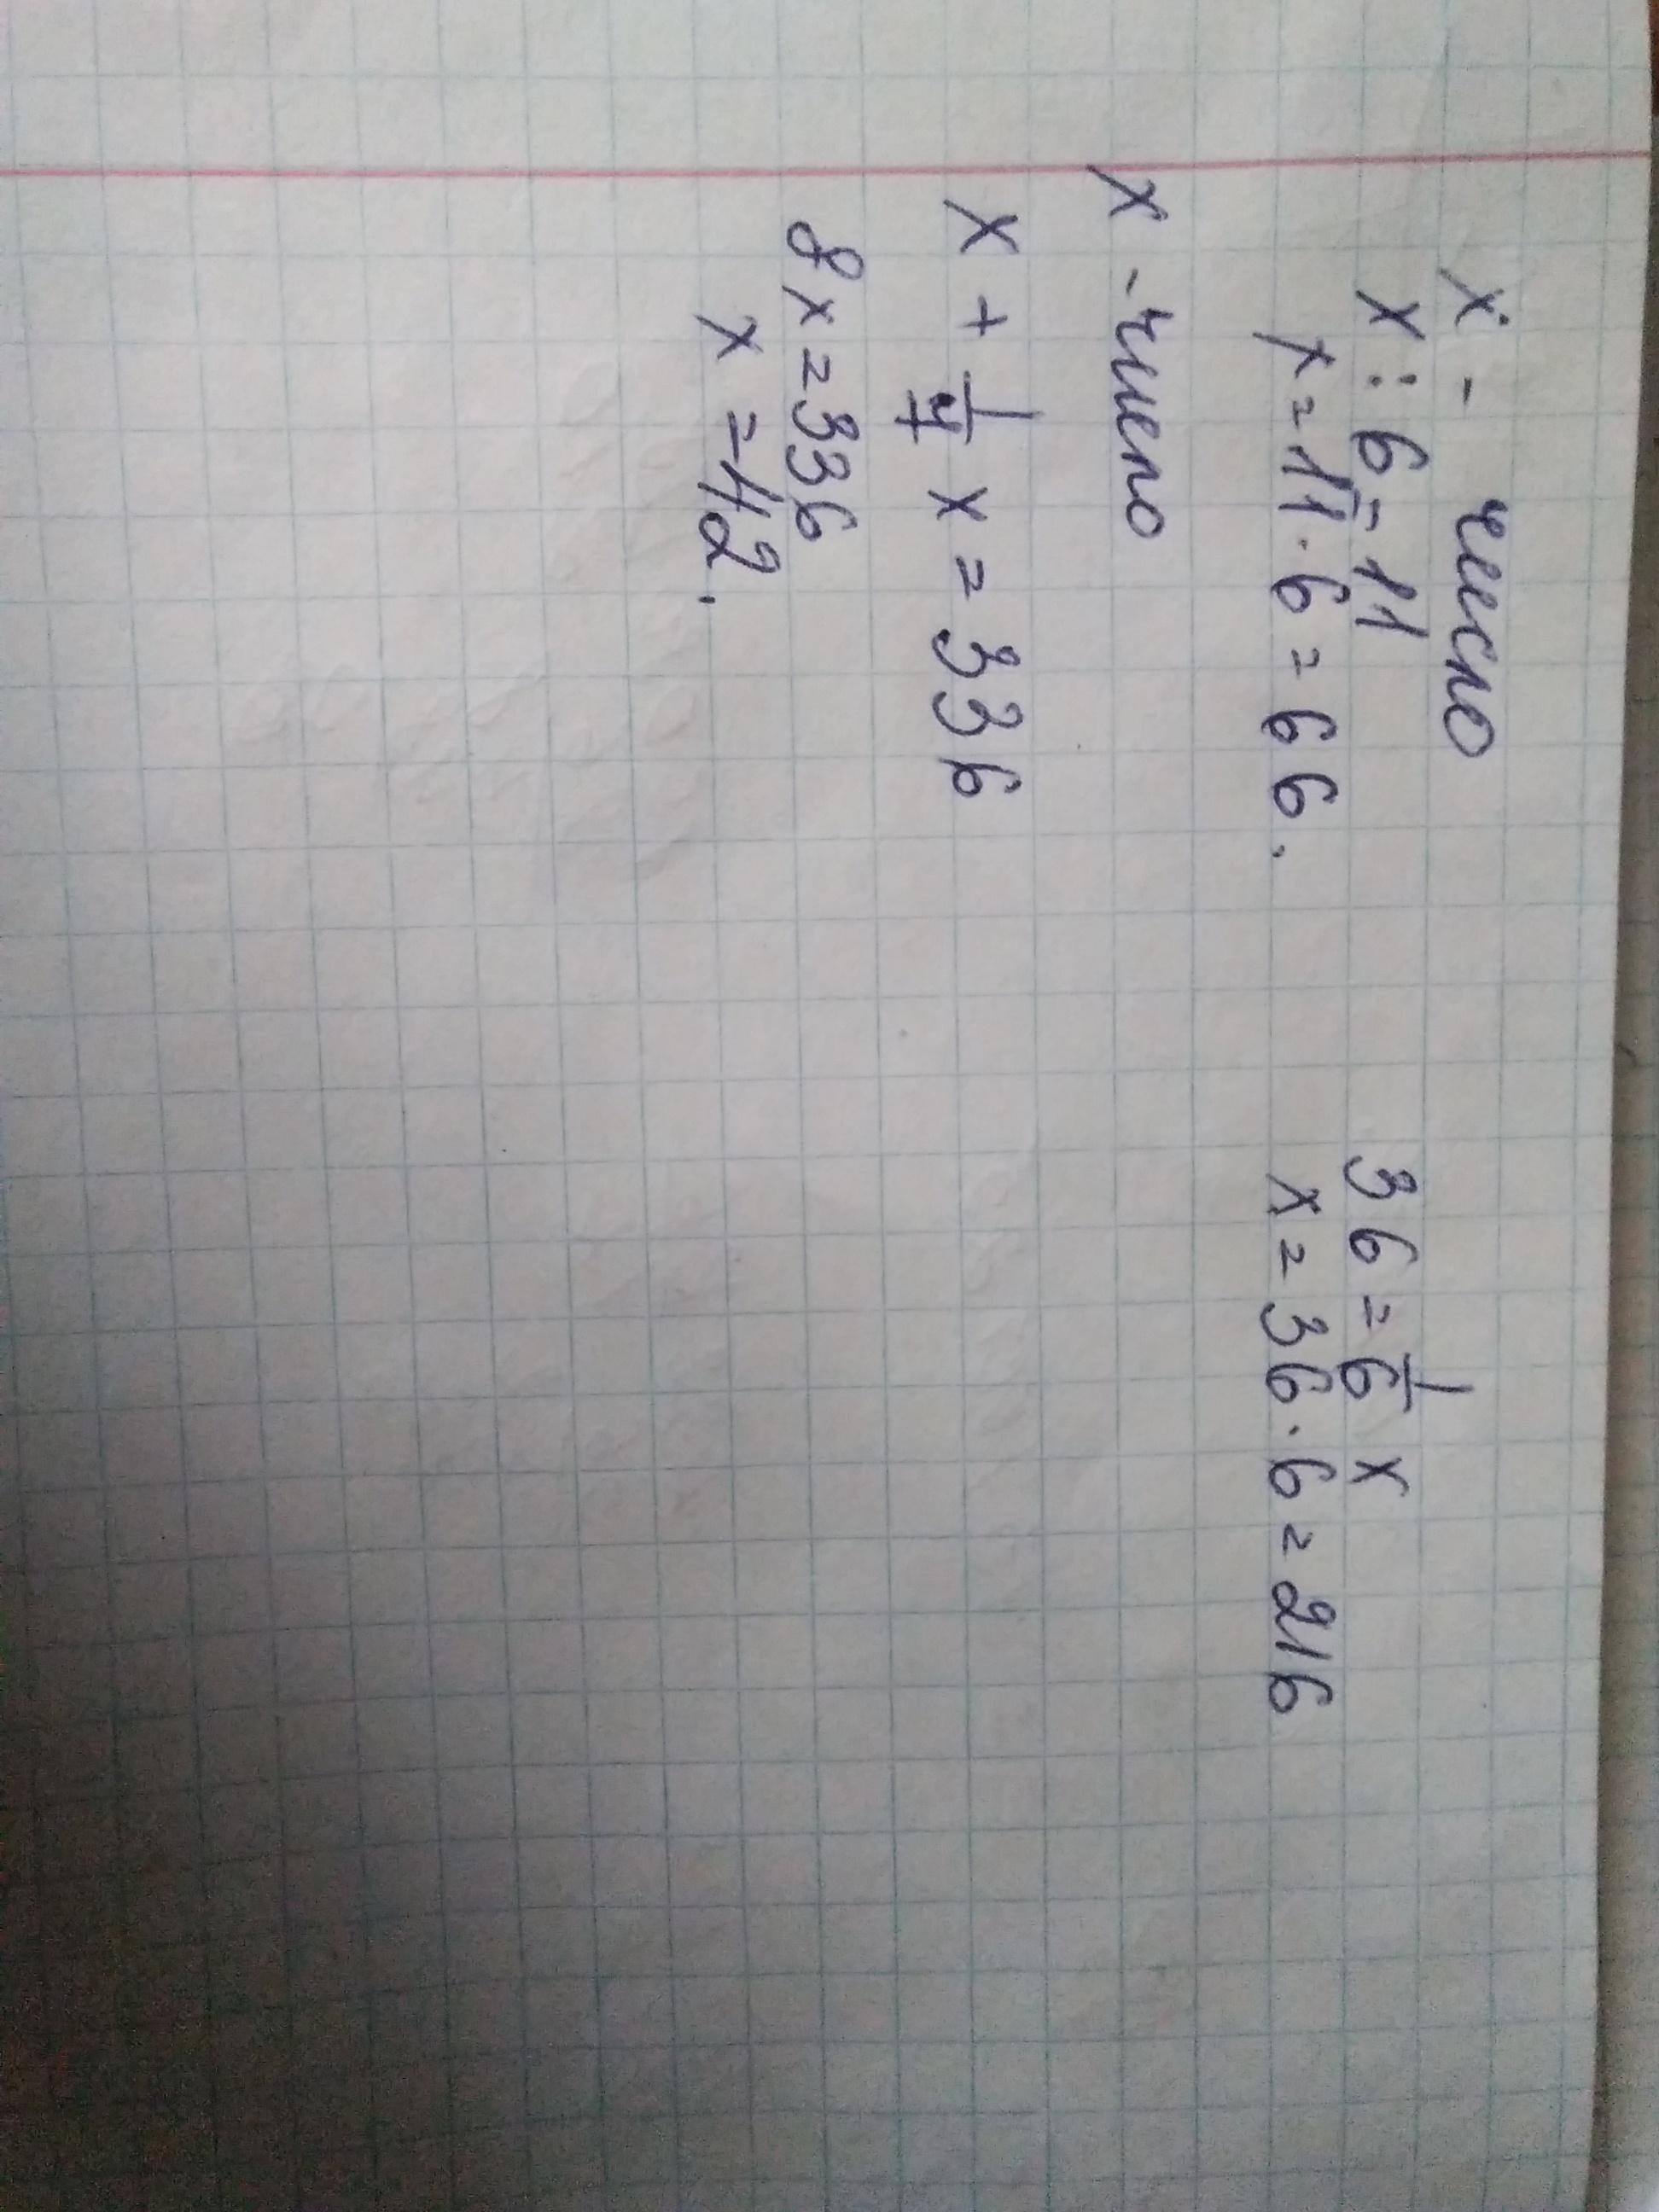 x - число
x : 6 = 11
x = 11 · 6 = 66.
36 = 1/6 x
x = 36 · 6 = 216
x - число
x + 1/7 x = 336
8x = 336
x = 42.